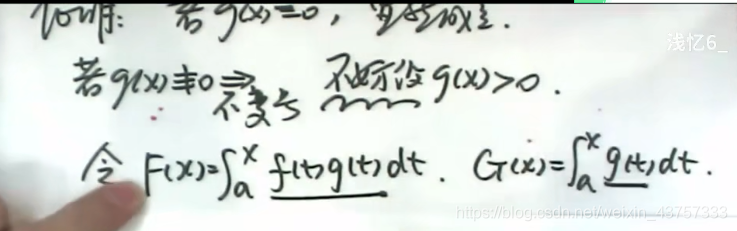 证明: 若g(x)≡0, 显然成立.
浅忆6_
若g(x)≢0 ⇒ 不变号 不妨设 g(x)>0.
令 F(x)=∫ₐˣ f(t)g(t)dt. G(x)=∫ₐˣ g(t)dt.
https://blog.csdn.net/weixin_43757333